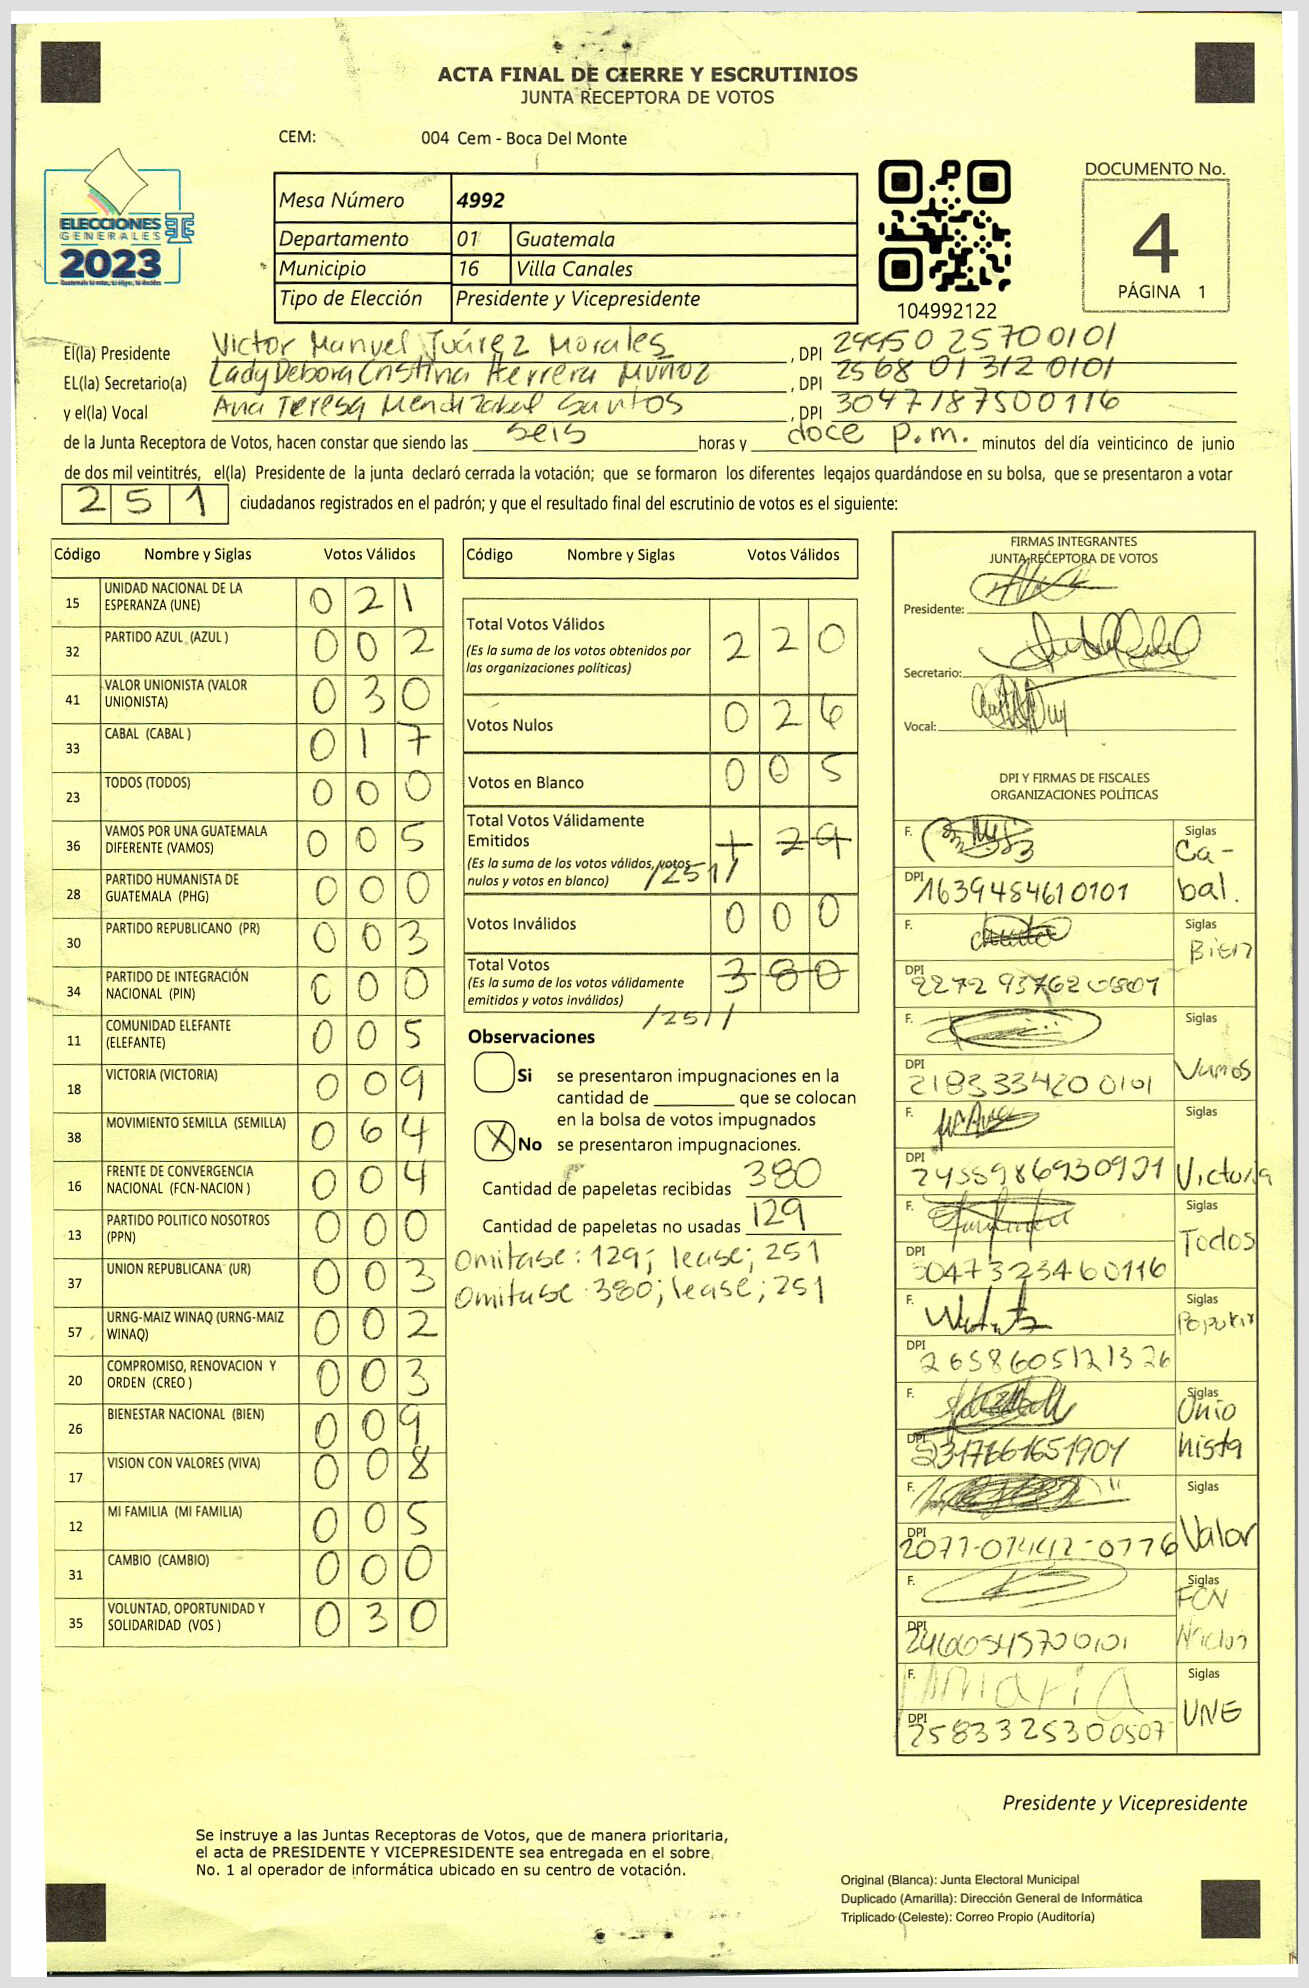 ACTA FINAL DE CIERRE Y ESCRUTINIOS
JUNTA RECEPTORA DE VOTOS
CEM: 004 Cem - Boca Del Monte
ELECCIONES
GENERALES
2023
Mesa Número 4992
Departamento 01 Guatemala
Municipio 16 Villa Canales
Tipo de Elección Presidente y Vicepresidente
104992122
DOCUMENTO No.
4
PÁGINA 1
El(la) Presidente Victor Manuel Juárez Morales, DPI 29950 25700101
EL(la) Secretario(a) Lady Debora Cristina Herrera Muñoz, DPI 2568 01312 0101
y el(la) Vocal Ana Teresa Mendizabal Santos, DPI 3047187500116
de la Junta Receptora de Votos, hacen constar que siendo las seis horas y doce p.m. minutos del día veinticinco de junio
de dos mil veintitrés, el(la) Presidente de la junta declaró cerrada la votación; que se formaron los diferentes legajos guardándose en su bolsa, que se presentaron a votar
251 ciudadanos registrados en el padrón; y que el resultado final del escrutinio de votos es el siguiente:
Código Nombre y Siglas Votos Válidos
15 UNIDAD NACIONAL DE LA ESPERANZA (UNE) 021
32 PARTIDO AZUL (AZUL ) 002
41 VALOR UNIONISTA (VALOR UNIONISTA) 030
33 CABAL (CABAL ) 017
23 TODOS (TODOS) 000
36 VAMOS POR UNA GUATEMALA DIFERENTE (VAMOS) 005
28 PARTIDO HUMANISTA DE GUATEMALA (PHG) 000
30 PARTIDO REPUBLICANO (PR) 003
34 PARTIDO DE INTEGRACIÓN NACIONAL (PIN) 000
11 COMUNIDAD ELEFANTE (ELEFANTE) 005
18 VICTORIA (VICTORIA) 009
38 MOVIMIENTO SEMILLA (SEMILLA) 064
16 FRENTE DE CONVERGENCIA NACIONAL (FCN-NACION ) 004
13 PARTIDO POLITICO NOSOTROS (PPN) 000
37 UNION REPUBLICANA (UR) 003
57 URNG-MAIZ WINAQ (URNG-MAIZ WINAQ) 002
20 COMPROMISO, RENOVACION Y ORDEN (CREO ) 003
26 BIENESTAR NACIONAL (BIEN) 009
17 VISION CON VALORES (VIVA) 008
12 MI FAMILIA (MI FAMILIA) 005
31 CAMBIO (CAMBIO) 000
35 VOLUNTAD, OPORTUNIDAD Y SOLIDARIDAD (VOS ) 030
Código Nombre y Siglas Votos Válidos
Total Votos Válidos 220
(Es la suma de los votos obtenidos por
las organizaciones políticas)
Votos Nulos 026
Votos en Blanco 005
Total Votos Válidamente
Emitidos 129
(Es la suma de los votos válidos, votos
nulos y votos en blanco) /251/
Votos Inválidos 000
Total Votos 380
(Es la suma de los votos válidamente
emitidos y votos inválidos)
/251/
Observaciones
Si se presentaron impugnaciones en la
cantidad de ________ que se colocan
en la bolsa de votos impugnados
X No se presentaron impugnaciones.
Cantidad de papeletas recibidas 380
Cantidad de papeletas no usadas 129
Omitase: 129; lease; 251
Omitase 380; lease; 251
FIRMAS INTEGRANTES
JUNTA RECEPTORA DE VOTOS
Presidente:
Secretario:
Vocal:
DPI Y FIRMAS DE FISCALES
ORGANIZACIONES POLÍTICAS
F. Siglas Cabal.
DPI 1639484610101
F. Siglas Bien
DPI 2272 937620801
F. Siglas Vamos
DPI 2183334200101
F. Siglas Victoria
DPI 2455986930921
F. Siglas Todos
DPI 3047323460116
F. Siglas
DPI 2658605121326
F. Siglas Unionista
DPI 2317661651901
F. Siglas Valor
DPI 2077-07442-0776
F. Siglas FCN Nacion
DPI 2460545700101
F. Maria Siglas UNE
DPI 2583325300507
Presidente y Vicepresidente
Se instruye a las Juntas Receptoras de Votos, que de manera prioritaria,
el acta de PRESIDENTE Y VICEPRESIDENTE sea entregada en el sobre
No. 1 al operador de informática ubicado en su centro de votación.
Original (Blanca): Junta Electoral Municipal
Duplicado (Amarilla): Dirección General de Informática
Triplicado (Celeste): Correo Propio (Auditoría)